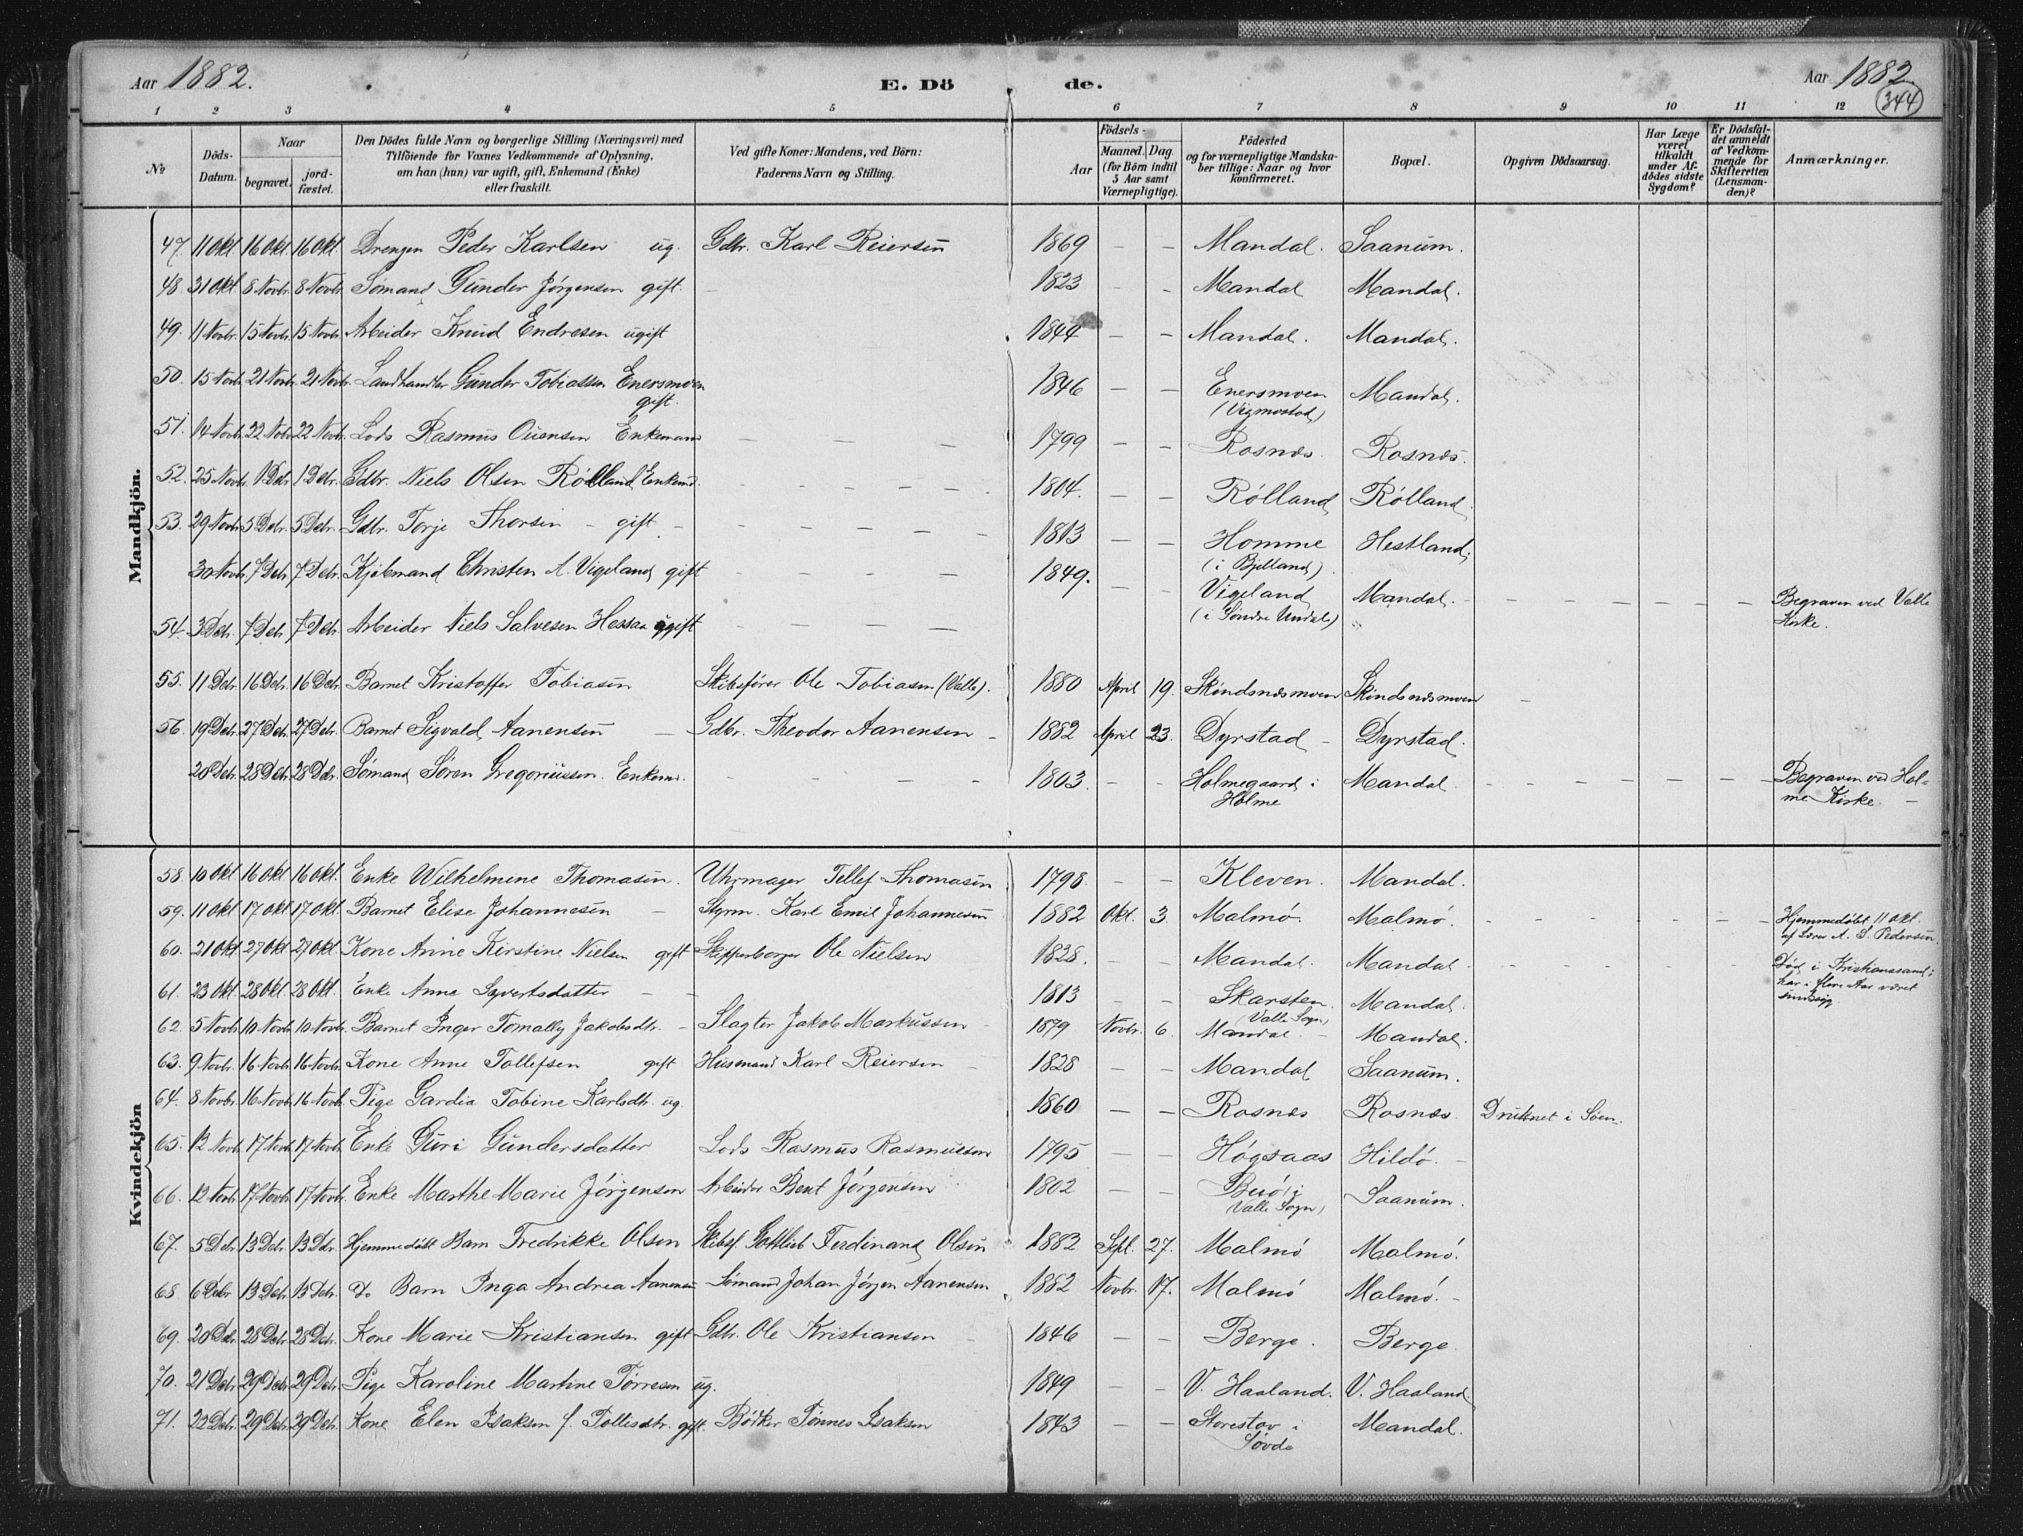 Aar 1882. E. Dö de. Aar 1882
344
1 2 3 4 5 6 7 8 9 10 11 12
№ Döds-Datum. Naar begravet. jord-fæstet. Den Dödes fulde Navn og borgerlige Stilling (Næringsvei) med Tilföiende for Voxnes Vedkommende af Oplysning, om han (hun) var ugift, gift, Enkemand (Enke) eller fraskilt. Ved gifte Koner: Mandens, ved Börn: Faderens Navn og Stilling. Födsels- Aar Maaned. Dag. (for Börn indtil 5 Aar samt Værnepligtige). Födested og for værnepligtige Mandskaber tillige: Naar og hvor konfirmeret. Bopæl. Opgiven Dödsaarsag. Har Læge været tilkaldt under Afdödes sidste Sygdom? Er Dödsfaldet anmeldt af Vedkommende for Skifteretten (Lensmanden)? Anmærkninger.
Mandkjön.
47. 11 Okt. 16 Okt. 16 Okt. Drengen Peder Karlsen ug. Gdbr. Karl Reiersen 1869 – – Mandal. Saanum.
48. 31 Okt. 8 Novbr. 8 Novbr. Sømand Gunder Jørgensen gift. – 1823 – – Mandal Mandal.
49. 11 Novbr. 15 Novbr. 15 Novbr. Arbeider Knud Endresen ugift 1844 – – Mandal. Mandal.
50. 15 Novbr. 21 Novbr. 21 Novbr. Landhandler Gunder Tobiassen Enersmoen gift. 1846 – – Enersmoen (Vigmostad) Mandal.
51. 14 Novbr. 22 Novbr. 22 Novbr. Lods Rasmus Ouensen Enkemand – – – 1799 – – Rosnæs. Rosnæs.
52. 25 Novbr. 1 Debr. 1 Debr. Gdbr. Niels Olsen Rølland, Enkemd. – – – 1804. – – Rølland Rølland.
53. 29 Novbr. 5 Debr. 5 Debr. Gdbr. Torje Thorsen – gift. – – – 1813 – – Homme (i Bjelland) Hestland.
30 Novbr. 7 Debr. 7 Debr. Kjøbmand Christen A. Vigeland gift – – – 1849. – – Vigeland (i Søndre Undal) Mandal. – – – Begraven ved Valle Kirke.
54. 3 Debr. 7 Debr. 7 Debr. Arbeider Niels Salvesen Hessaa gift – – –
55. 11 Debr. 16 Debr. 16 Debr. Barnet Kristoffer Tobiasen Skibsfører Ole Tobiasen (Valle). 1880 April 19. Skindsnæsmoen Skindsnæsmoen –
56. 19 Debr. 27 Debr. 27 Debr. Barnet Sigvald Aanensen – Gdbr. Theodor Aanensen – 1882 April 23. Dyrstad – Dyrstad.
20 Debr. 28 Debr. 28 Debr. Sømand Søren Gregoriussen. Enkemd. – – – 1803. – – Holmegaard i Holme Mandal. – – – Begraven ved Holme Kirke. –
Kvindekjön
58. 10 Okt. 16 Okt. 16 Okt. Enke Wilhelmine Thomasen. Uhrmager Tellef Thomasen 1798 – – Kleven. Mandal.
59. 11 Okt. 17 Okt. 17 Okt. Barnet Elise Johannesen – Styrm. Karl Emil Johannesen 1882 Okt. 3. Malmø. Malmø. – – – Hjemmedøbt 11 Okt. af Lærer A. S. Pedersen.
60. 21 Okt. 27 Okt. 27 Okt. Kone Anine Kirstine Nielsen gift Skipperborger Ole Nielsen 1828. – – Mandal. Mandal. – – – Død i Kristianssand; har i flere Aar været sindssyg.
61. 23 Okt. 28 Okt. 28 Okt. Enke Anne Syvertsdatter – – 1813 – – Skarsten. (Valle Sogn) Mandal.
62. 5 Novbr. 10 Novbr. 10 Novbr. Barnet Inger Tomally Jakobsdtr. – Slagter Jakob Markussen – 1879 Novbr. 6. Mandal – Mandal.
63. 9 Novbr. 16 Novbr. 16 Novbr. Kone Anne Tollefsen gift Husmand Karl Reiersen – 1828 – – Mandal Saanum.
64. 8 Novbr. 16 Novbr. 16 Novbr. Pige Gardia Tobine Karlsdtr. ug. 1860 – – Rosnæs Rosnæs. Druknet i Søen.
65. 12 Novbr. 17 Novbr. 17 Novbr. Enke Guri Gundersdatter Lods Rasmus Rasmussen 1795 – – Høgsaas Hildø. –
66. 12 Novbr. 17 Novbr. 17 Novbr. Enke Marthe Marie Jørgensen Arbeider Bent Jørgensen 1802 – – Buø i Valle Sogn) Saanum.
67. 5 Debr. 13 Debr. 13 Debr. Hjemmedøbt Barn Fredrikke Olsen Skibsf. Gottlieb Ferdinand Olsen 1882 Sept. 27. Malmø Malmø.
68. 6 Debr. 13 Debr. 13 Debr. do Barn Inga Andrea Aanensen Sømand Johan Jørgen Aanensen 1882 Novbr. 17. Malmø Malmø. –
69. 20 Debr. 28 Debr. 28 Debr. Kone Marie Kristiansen gift Gdbr. Ole Kristiansen 1846 – – Berge. Berge.
70. 21 Debr. 29 Debr. 29 Debr. Pige Karoline Martine Tørresen ug. 1849 – – V. Haaland. V. Haaland
71. 22 Debr. 29 Debr. 29 Debr. Kone Elen Isaksen f. Tollisdtr. gift. Bødker Tønnes Isaksen 1843 – – Storestøv i Søvde Mandal.